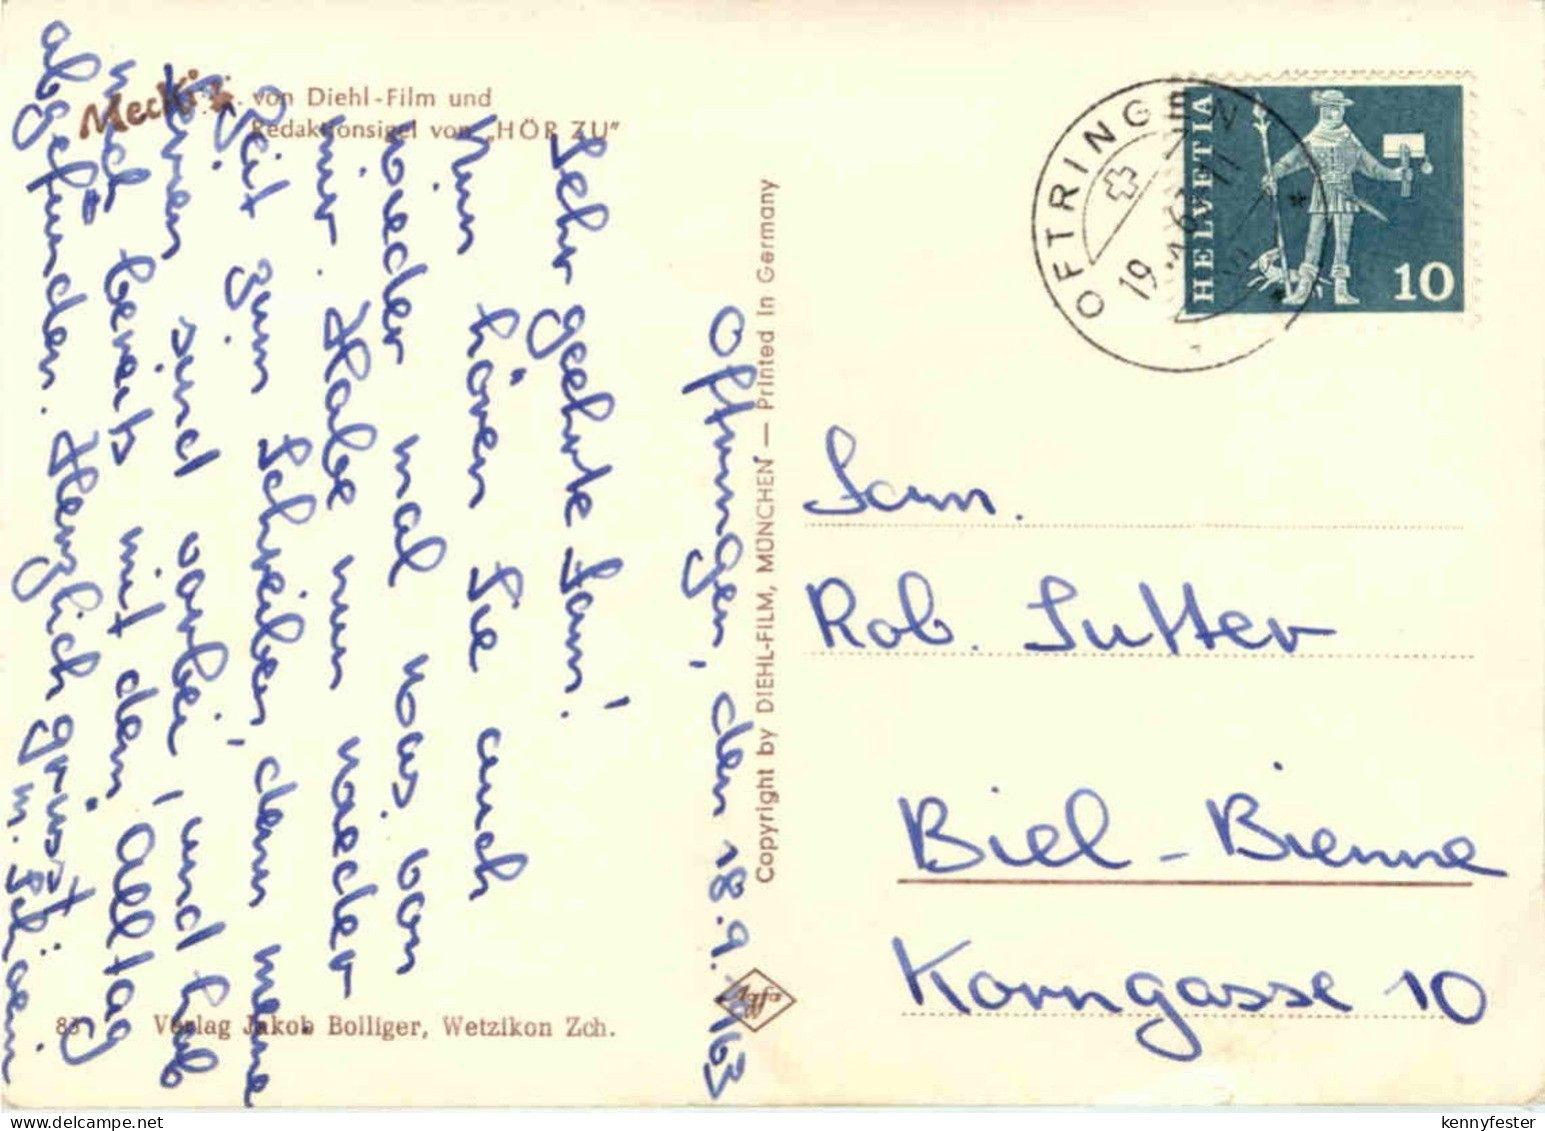 Mecki
von Diehl-Film und
Redaktionsigel von „HÖR ZU"
Oftringen, den 18.9.1963
Sehr geehrte Fam.!
Nun hören Sie auch
wieder mal was von
mir. Habe nun wieder
Zeit zum Schreiben, denn meine
Ferien sind vorbei, und hab
mich bereits mit dem Alltag
abgefunden. Herzlich grüsst:
Copyright by DIEHL-FILM, MÜNCHEN — Printed in Germany
Agfa
Verlag Jakob Bolliger, Wetzikon Zch.
OFTRINGEN
19
HELVETIA
10
Fam.
Rob. Sutter
Biel - Bienne
Korngasse 10
kennyfester